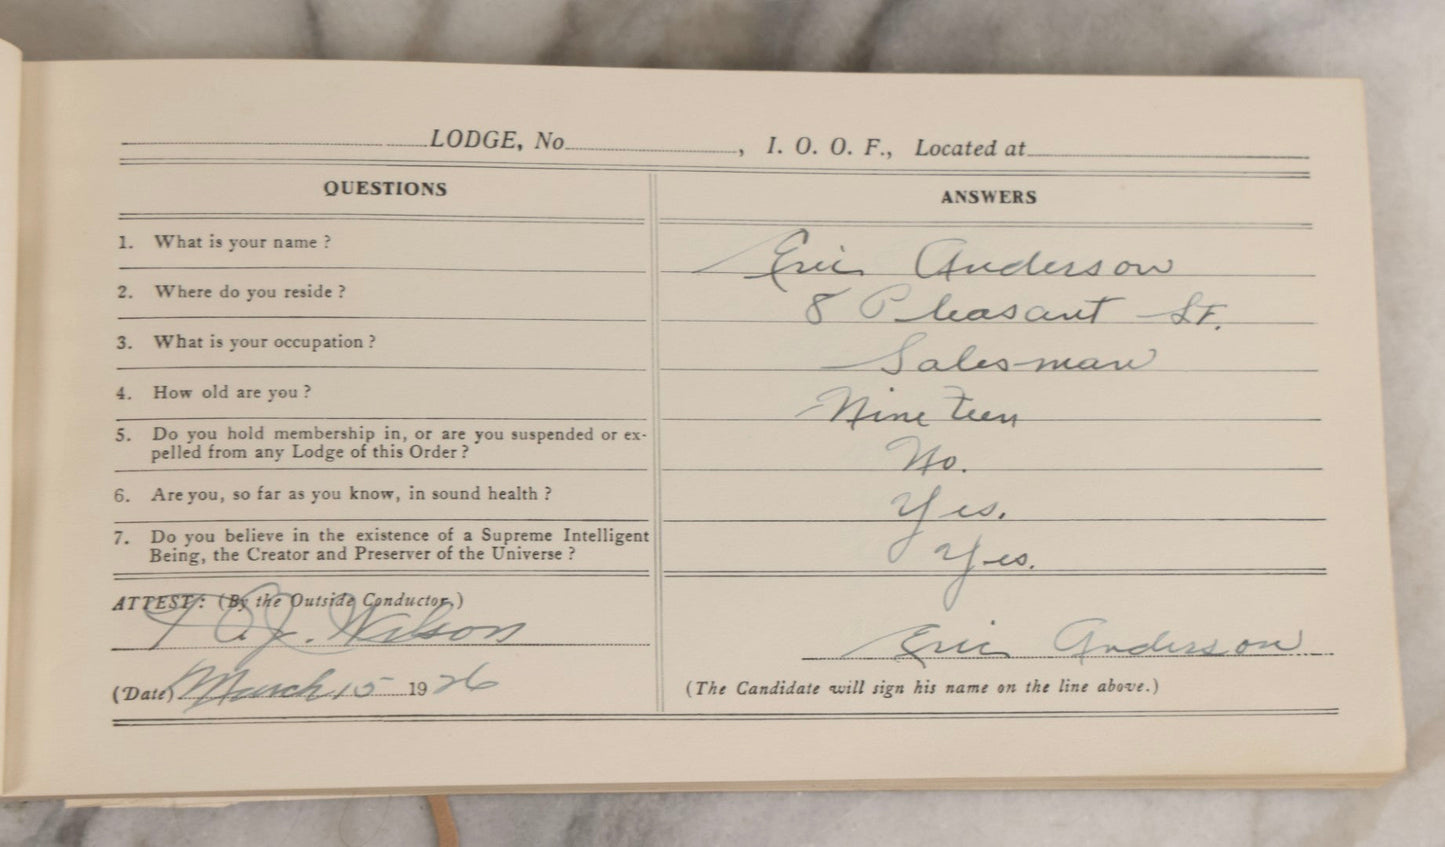 LODGE, No. , I. O. O. F., Located at
QUESTIONS ANSWERS
1. What is your name ? Eric Anderson
2. Where do you reside ? 8 Pleasant St.
3. What is your occupation ? Salesman
4. How old are you ? Nineteen
5. Do you hold membership in, or are you suspended or ex-
pelled from any Lodge of this Order ? No.
6. Are you, so far as you know, in sound health ? Yes.
7. Do you believe in the existence of a Supreme Intelligent
Being, the Creator and Preserver of the Universe ? Yes.
ATTEST: (By the Outside Conductor.)
Wilson Eric Anderson
(Date) March 15 1926 (The Candidate will sign his name on the line above.)